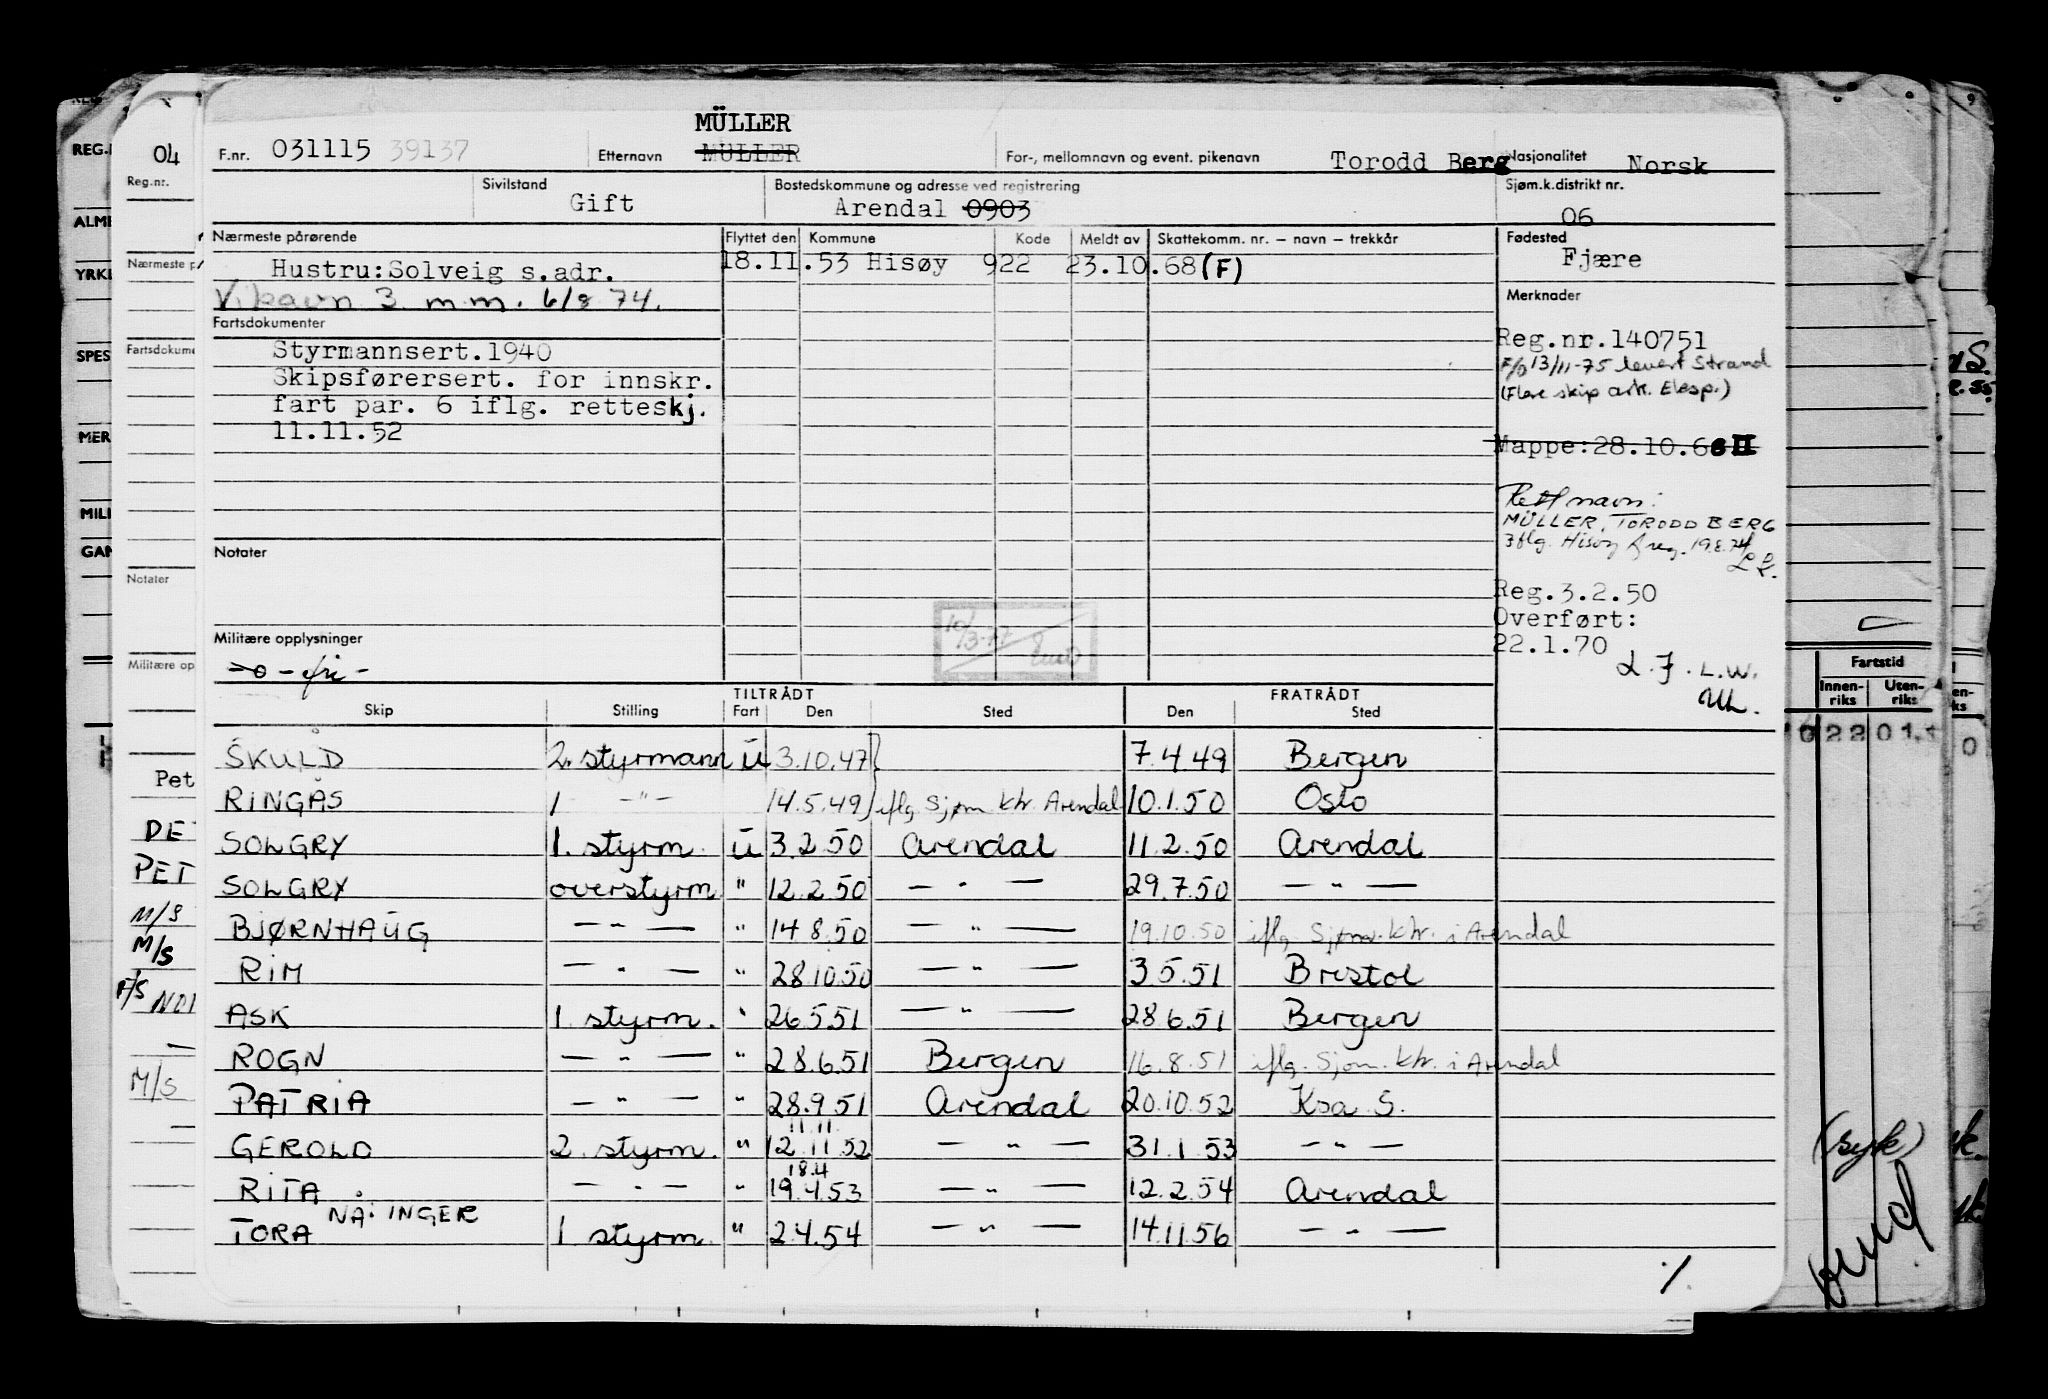 MÜLLER
F.nr. 031115 39137 Etternavn MULLER For-, mellomnavn og event. pikenavn Torodd Berg Nasjonalitet Norsk
Sivilstand Gift Bostedskommune og adresse ved registrering Arendal 0903 Sjøm.k.distrikt nr. 06
Nærmeste pårørende Flyttet den Kommune Kode Meldt av Skattekomm. nr. – navn – trekkår Fødested
Hustru:Solveig s.adr. 18.11.53 Hisøy 922 23.10.68(F) Fjære
Vikavn 3 m.m. 6/8 74.
Merknader
Fartsdokumenter
Styrmannsert.1940
Skipsførersert. for innskr.
fart par. 6 iflg. retteskj.
11.11.52
Reg.nr.140751
F/o 13/11-75 levert Strand
(Flere skip ark. Eksp.)
Mappe:28.10.68 II
Rett navn:
MÜLLER, TORODD BERG
iflg. Hisøy freg. 19.8.74
Notater
Reg.3.2.50
Overført:
22.1.70
L.F. L.W.
10/3-77
Militære opplysninger
TILTRÅDT FRATRÅDT
Skip Stilling Fart Den Sted Den Sted
SKULD 2. styrmann u 3.10.47 7.4.49 Bergen
RINGÅS 1 –"– 14.5.49 iflg Sjøm. ktr. Arendal 10.1.50 Oslo
SOLGRY 1. styrm. u 3.2.50 Arendal 11.2.50 Arendal
SOLGRY overstyrm " 12.2.50 – " – 29.7.50 – " –
BJØRNHAUG – " – " 14.8.50 – " – 19.10.50 iflg. Sjøm. ktr. i Arendal
RIM – " – " 28.10.50 – " – 3.5.51 Bristol
ASK 1. styrm. " 26.5.51 – " – 28.6.51 Bergen
ROGN – " – " 28.6.51 Bergen 16.8.51 iflg. Sjøm. ktr. i Arendal
PATRIA – " – " 28.9.51 Arendal 20.10.52 Ksa S.
11.11.
GEROLD 2. styrm. " 12.11.52 – " – 31.1.53 – " –
18.4
RITA – " – " 19.4.53 – " – 12.2.54 Arendal
TORA NÅ: INGER 1 styrm. " 2.4.54 – " – 14.11.56 – " –
%
04
Reg.nr.
Nærmeste
Fartsdokume
Notater
Militære op
Pet
DE
PET
M/S
M/S
F/S
M/S
REG.
ALM
YRK
SPES
MER
MILI
GAN
Fartstid
Innen-
riks
Uten-
riks
(syk)